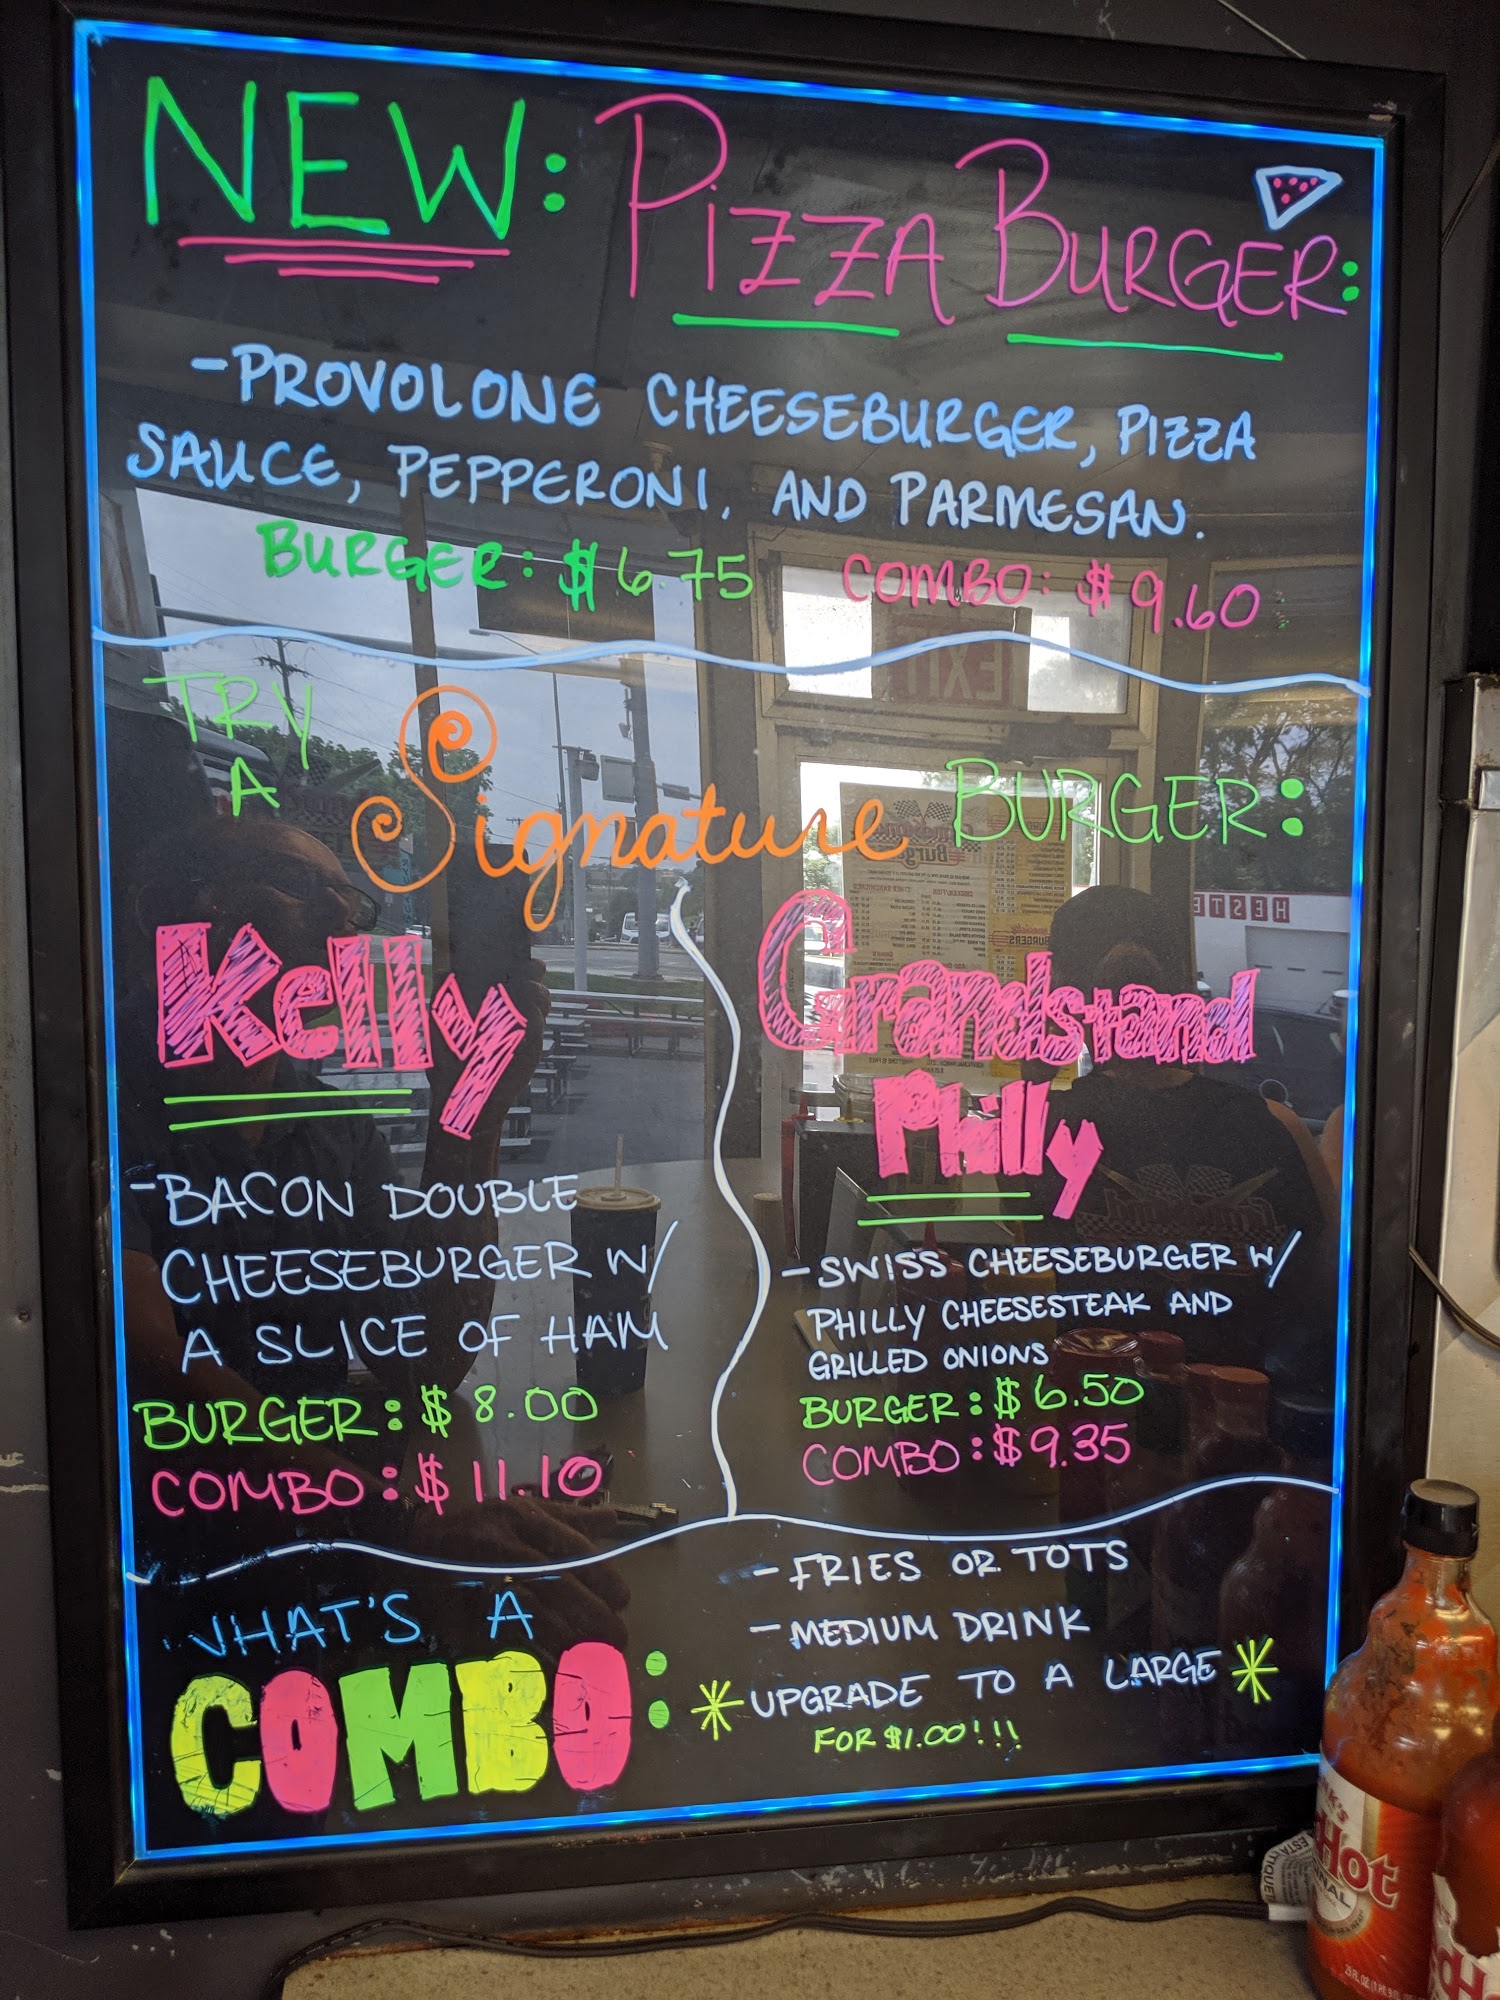 NEW: PIZZA BURGER:
-PROVOLONE CHEESEBURGER, PIZZA
SAUCE, PEPPERONI, AND PARMESAN.
BURGER: $6.75 COMBO: $9.60
TRY
A
Signature BURGER:
Kelly
-BACON DOUBLE
CHEESEBURGER W/
A SLICE OF HAM
BURGER: $8.00
COMBO: $11.10
Grandstand
Philly
-SWISS CHEESEBURGER W/
PHILLY CHEESESTEAK AND
GRILLED ONIONS
BURGER: $6.50
COMBO: $9.35
WHAT'S A
COMBO:
-FRIES OR TOTS
-MEDIUM DRINK
*UPGRADE TO A LARGE*
FOR $1.00!!!
EXIT
Hot